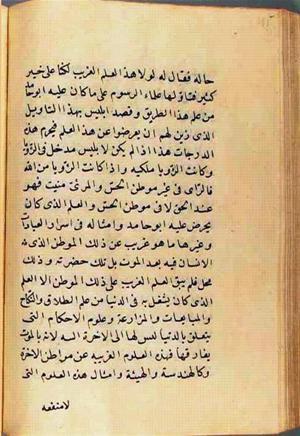 حاله فقال له لولا هذا العلم الغريب لكنا على خير
كثير فتاولها علماء الرسوم على ما كان عليه ابو حامد
من علم هذا الطريق وقصد ابليس بهذا التاويل
الذى زين لهم ان يعرضوا عن هذا العلم فيحرموا هذه
الدرجات هذا اذا لم يكن لابليس مدخل فى الرؤيا
وكانت الرؤيا ملكيه واذا كانت الرؤيا من الله
فالرائى فى غير موطن الحس والمرئى ميت فهو
عند الحق لا فى موطن الحس والعلم الذى كان
يحرض عليه ابو حامد وامثاله فى اسرار العبادات
وغيرها ما هو غريب عن ذلك الموطن الذى
الانسان فيه بعد الموت بل تلك حضرته وذلك
محل فلم يبق العلم الغريب على ذلك الموطن الا العلم
الذى كان يشتغل به فى الدنيا من علم الطلاق والنكاح
والمبايعات والمزارعة وعلوم الاحكام التى
يتعلق بالدنيا ليس لها الى الاخرة السه لانه بالموت
يفارقها فهذه العلوم الغريبه عن موطن الاخرة
وكالهندسة والهيئة وامثال هذه العلوم التى
لا منفعه